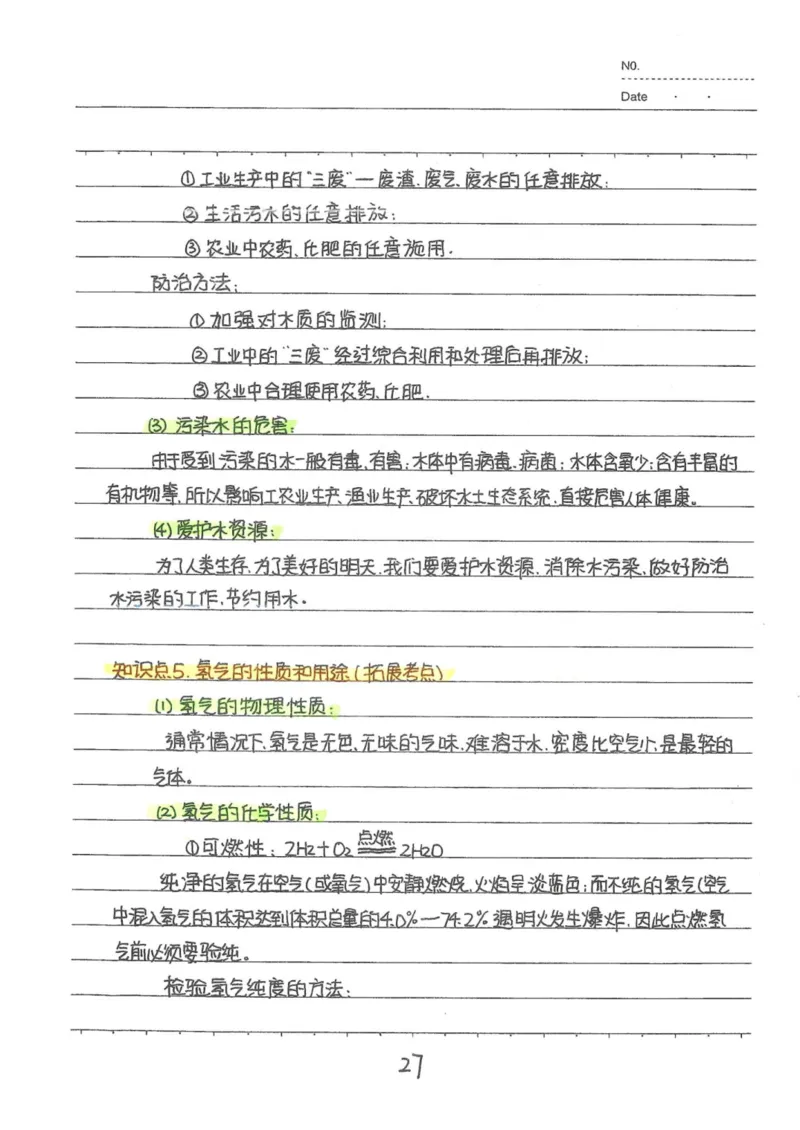 NO.
Date · ·
①工业生产中的"三废"—废渣、废气、废水的任意排放;
②生活污水的任意排放;
③农业中农药、化肥的任意施用.
防治方法:
①加强对水质的监测;
②工业中的"三废"经过综合利用和处理后再排放;
③农业中合理使用农药、化肥.
(3)污染水的危害:
由于受到污染的水一般有毒、有害;水体中有病毒、病菌;水体含氧少;含有丰富的
有机物等,所以影响工农业生产、渔业生产、破坏水土生态系统、直接危害人体健康。
(4)爱护水资源:
为了人类生存,为了美好的明天,我们要爱护水资源,消除水污染,做好防治
水污染的工作,节约用水.
知识点5.氢气的性质和用途(拓展考点)
(1)氢气的物理性质:
通常情况下,氢气是无色、无味的气味,难溶于水,密度比空气小,是最轻的
气体。
(2)氢气的化学性质:
①可燃性: 2H2+O2 点燃 2H2O
纯净的氢气在空气(或氧气)中安静燃烧,火焰呈淡蓝色;而不纯的氢气(空气
中混入氢气的体积达到体积总量的4.0%—74.2%遇明火发生爆炸,因此点燃氢
气前必须要验纯。
检验氢气纯度的方法:
27